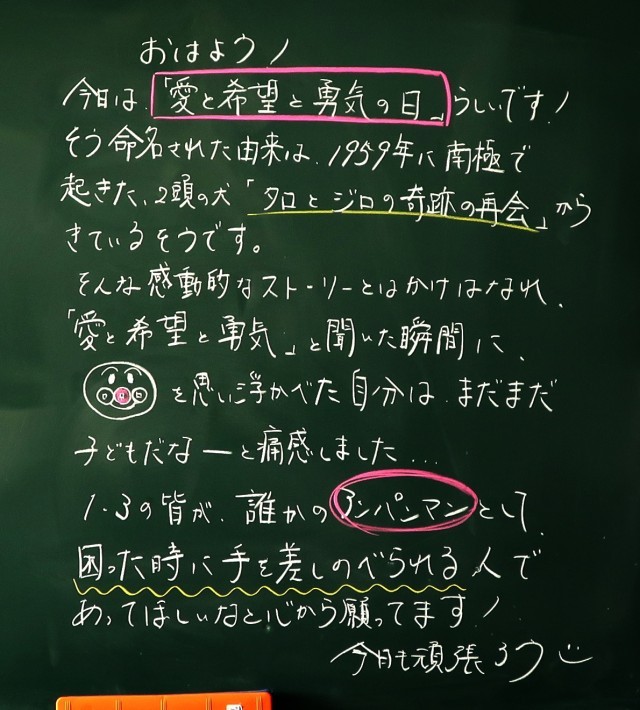 おはよう!
今日は、「愛と希望と勇気の日」らしいです!
そう命名された由来は、1959年に南極で
起きた、2頭の犬「タロとジロの奇跡の再会」から
きているそうです。
そんな感動的なストーリーとはかけはなれ、
「愛と希望と勇気」と聞いた瞬間に、
を思い浮かべた自分は、まだまだ
子どもだなーと痛感しました...
1-3の皆が、誰かのアンパンマンとして、
困った時に手を差しのべられる人で
あってほしいなと心から願ってます!
今日も頑張ろう